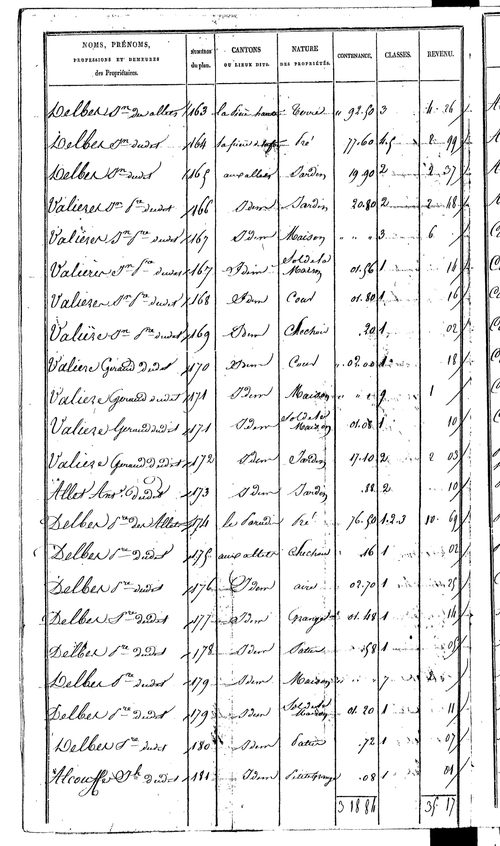 NOMS, PRÉNOMS, PROFESSIONS ET DEMEURES des Propriétaires. NUMÉROS du plan. CANTONS OU LIEUX DITS. NATURE DES PROPRIÉTÉS. CONTENANCE. CLASSES. REVENU.
Delber Jn des allets 163 la haute Terre 92.50 3 4 26
Delber Jn dudit 164 Pré 77.60 4.5 2 99
Delber Jn dudit 165 aux allets Jardin 19.90 2 2 37
Valieres Jn Pre dudit 166 Idem Jardin 20.80 2 2 48
Valieres Jn Pre dudit 167 Idem Maison " " " 3 6
Valieres Jn Pre dudit 167 Idem Sol de la Maison 01.56 1 14
Valieres Jn Pre dudit 168 Idem Cour 01.80 1 16
Valiere Jn Pre dudit 169 Idem .20 1 02
Valiere Geraud dudit 170 Idem Cour 02.00 1 18
Valiere Geraud dudit 171 Idem Maison " " " 9 1
Valiere Geraud dudit 171 Idem Sol de la Maison 01.08 1 10
Valiere Geraud dudit 172 Idem Jardin 17.10 2 2 03
Allet Ant. dudit 173 Idem Jardin .88 2 10
Delber Pre des Allets 174 Pré 76.50 1.2.3 10 69
Delber Pre dudit 175 aux allets .16 1 02
Delber Pre dudit 176 Idem aire 02.70 1 25
Delber Pre dudit 177 Idem Grange 01.48 1 14
Delber Pre dudit 178 Idem Patus .58 1 05
Delber Pre dudit 179 Idem Maison " " 7 2
Delber Pre dudit 179 Idem Sol de la Maison 01.20 1 11
Delber Pre dudit 180 Idem Patus .72 1 07
dudit 181 Idem Petite Grange .08 1 01
3 18 86 35 17